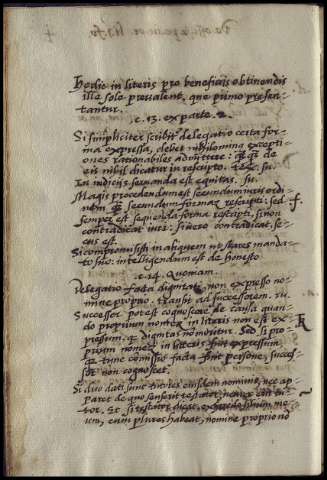 Hodie in literis pro beneficiis obtinendis
ille sole prevalent, que primo presen-
tantur.
c. 13. ex parte. 2.
Si simpliciter scribitur delegatio certa for-
ma expressa, debet nihilominus excepti-
ones rationabiles admittere: de
eis nihil dicatur in rescripto.
In iudiciis servanda est equitas. su.
Magis procedendum est secundum iuris ordi-
nem, quam secundum formam rescripti: sed
semper est sequenda forma rescripti, si non
contradicat iuri: si vero contradicat, se-
cus est.
Si compromissisti in aliquem ut stares manda-
to suo: intelligendum est de honesto
c. 14. Quoniam.
Delegatio facta dignitati, non expresso no-
mine proprio, transit ad successorem.
Successor potest cognoscere de causa quan-
do proprium nomen in literis non est ex-
pressum, dignitas nominatur. Sed si pro-
prium nomen in literis sint expressum
quia tunc commissio facta sint persone, succes-
sor non cognoscet.
Si duo dati sunt tutores eiusdem nominis, nec ap-
paret de quo senserit testator, neuter erit tu-
tor. Et si testator dicat, exheredo filium me-
um, cum plures habeat, nomine proprio no